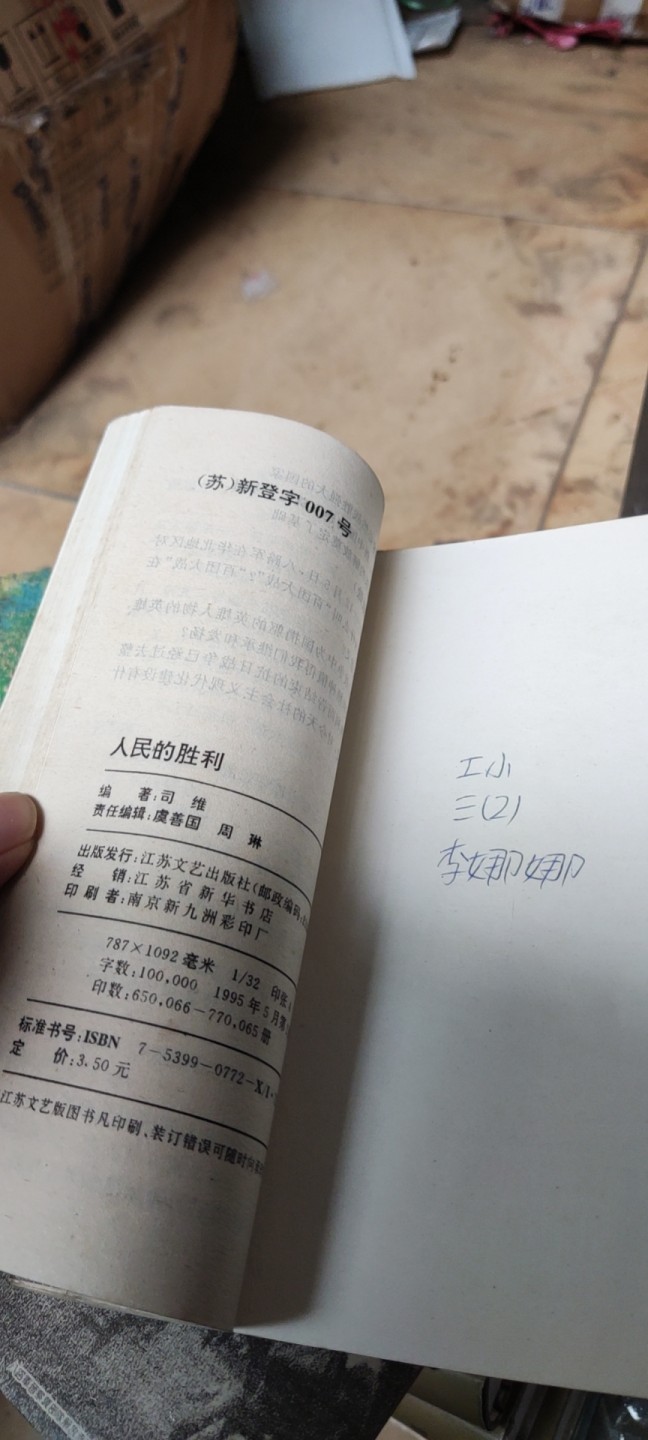 (苏)新登字007号
人民的胜利
编 著:司 维
责任编辑:虞善国 周 琳
出版发行:江苏文艺出版社(邮政编码:
经 销:江苏省新华书店
印刷者:南京新九洲彩印厂
787×1092毫米 1/32 印张
字数:100,000 1995年5月第
印数:650,066-770,065册
标准书号:ISBN 7-5399-0772-X/I·
定 价:3.50元
江苏文艺版图书凡印刷、装订错误可随时向
工小
三(2)
李娜娜